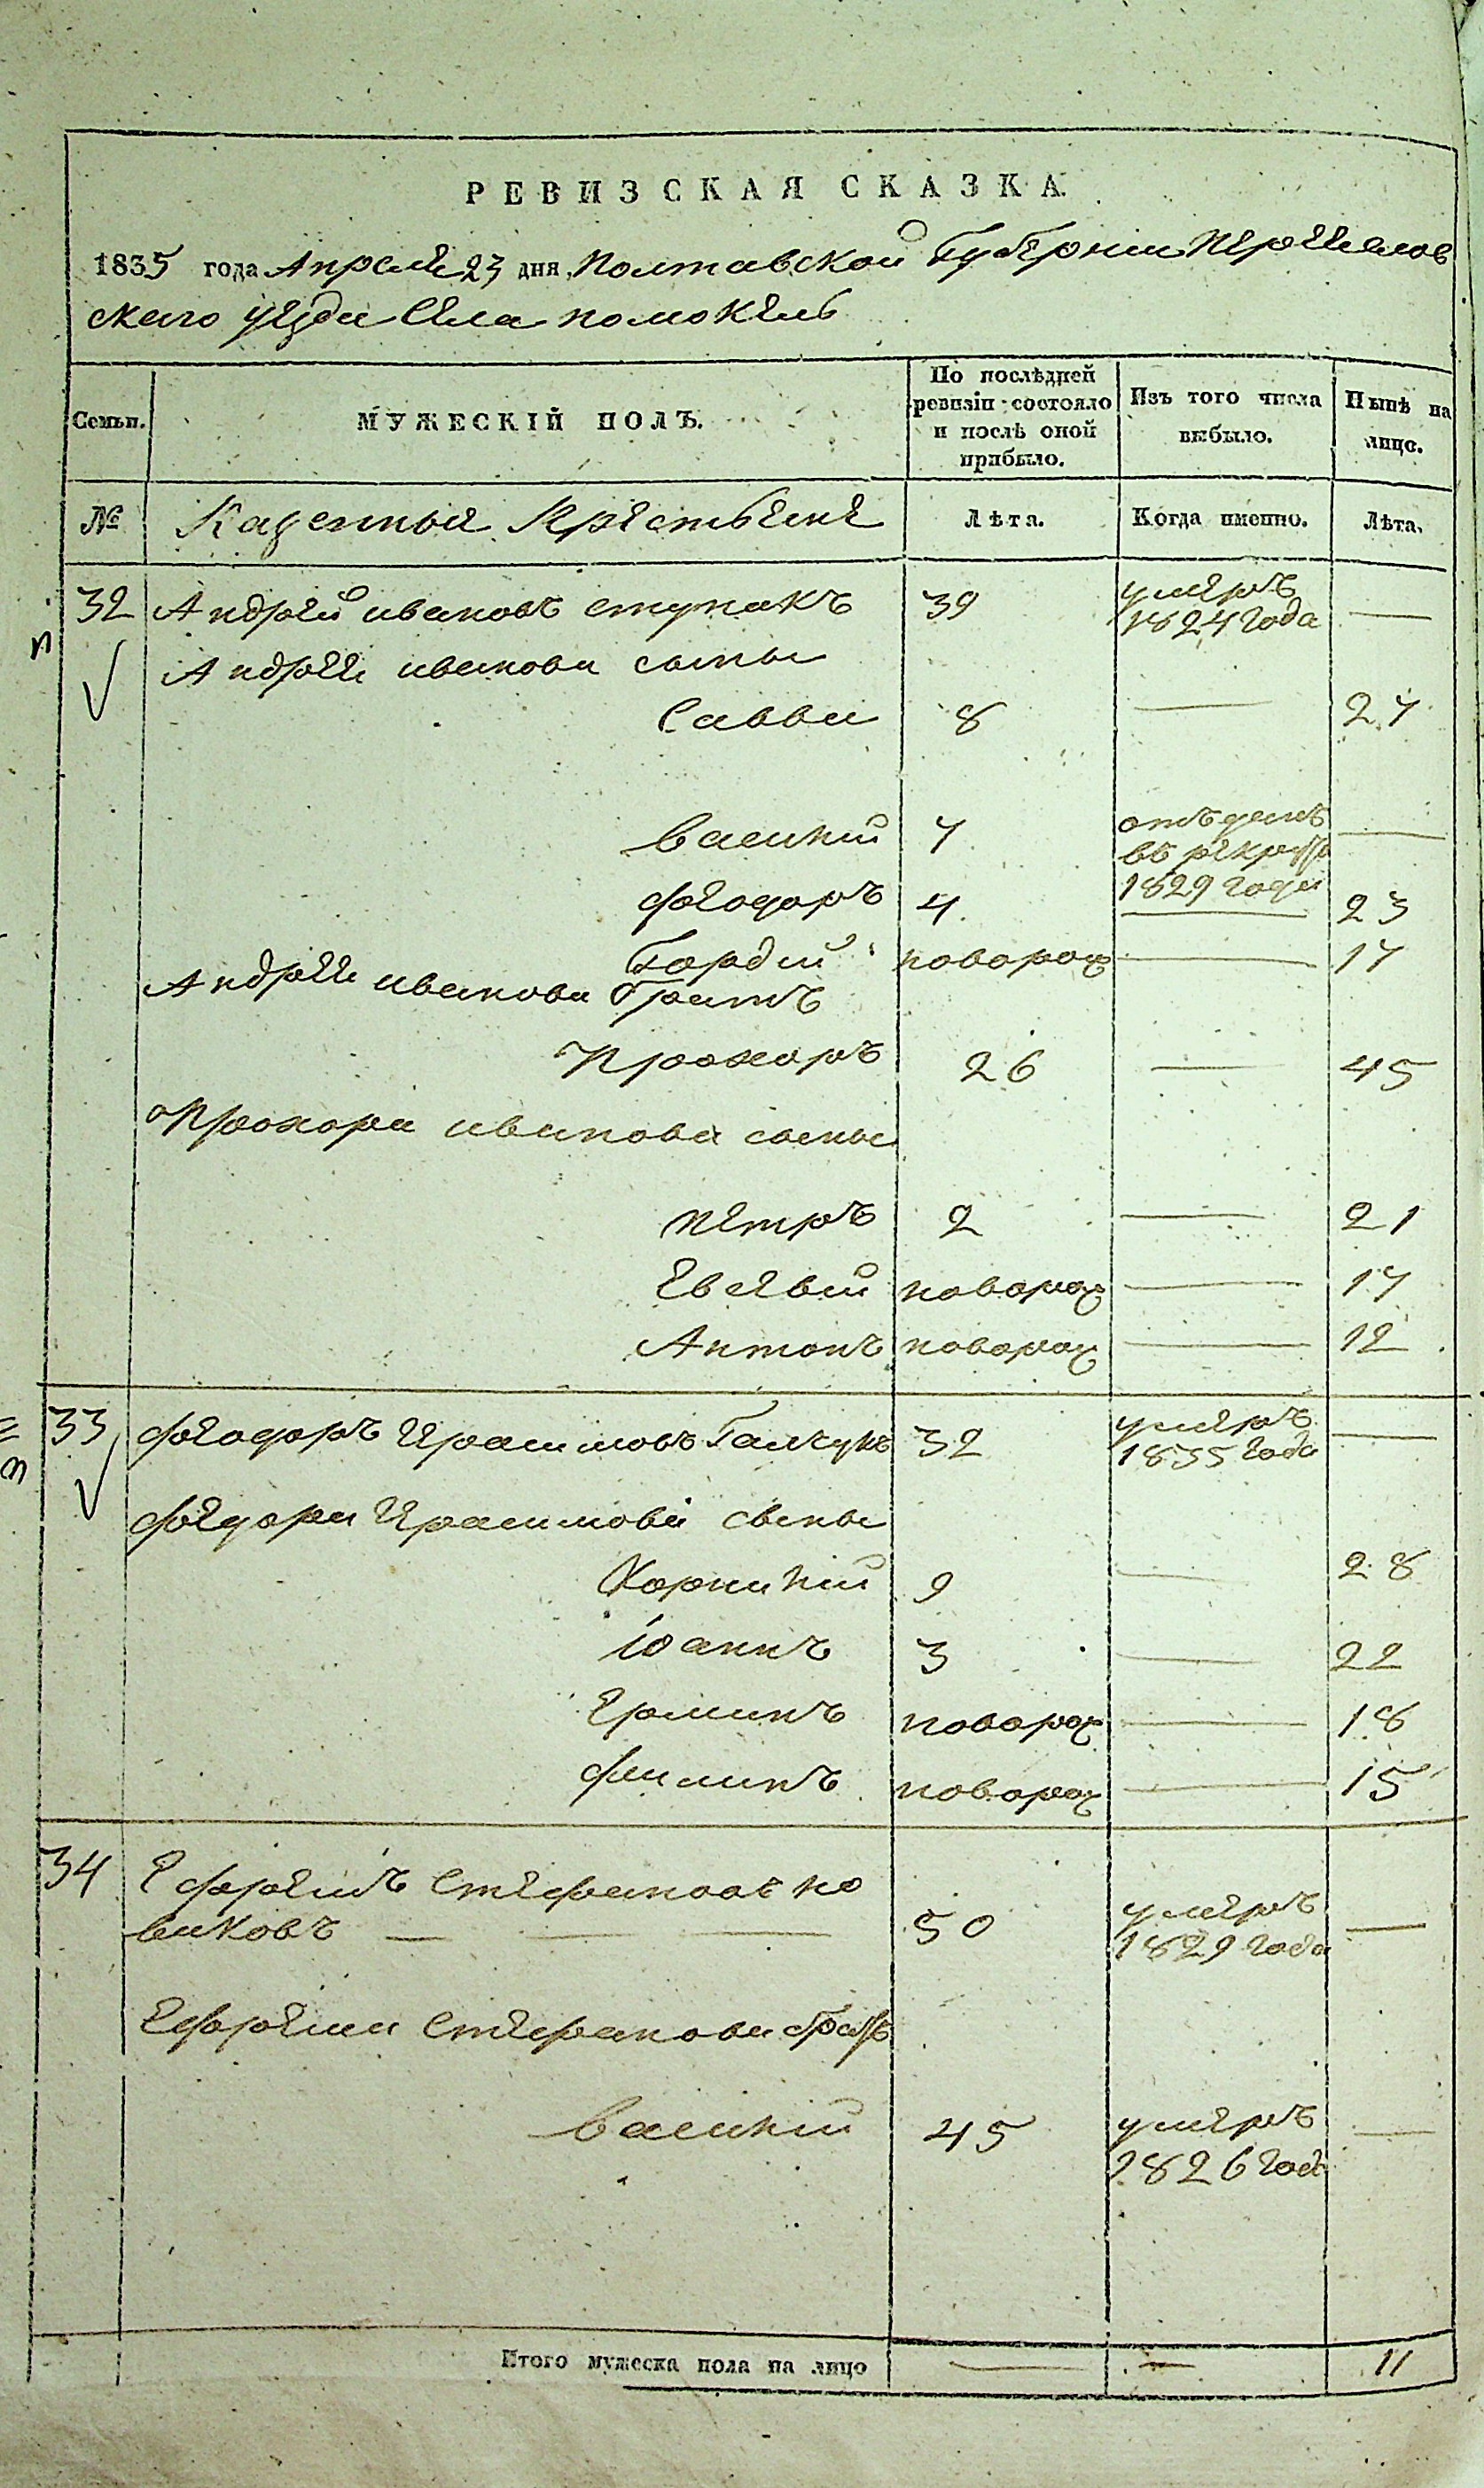 РЕВИЗСКАЯ СКАЗКА.
1835 года Апреля 23 дня, Полтавской Губернии Переяслов
скаго уезда Села помокель
Семьи.
МУЖЕСКІЙ ПОЛЪ.
По послѣдней ревизіи состояло и послѣ оной прибыло.
Изъ того числа выбыло.
Нынѣ на лице.
№ Казенныя Крестьяне Лѣта. Когда именно. Лѣта.
32 Андрей ивановъ ступакъ 39 умеръ 1824 года —
Андрея иванова сыны
Савва 8 — 27
василий 7 отъданъ въ рекруты 1829 года —
феодоръ 4 — 23
Гордий новорож — 17
Андрея иванова братъ
Прохоръ 26 — 45
Прохора иванова сыны
петръ 2 — 21
Евсевий новорож — 17
Антонъ новорож — 12
33 феодоръ Герасимовъ Галчукъ 32 умеръ 1835 года —
феодора Герасимова сыны
Корнилий 9 — 28
Іоаннъ 3 — 22
новорож — 18
филипъ новорож — 15
34 Ефремъ Стефановъ но
виковъ — — — 50 умеръ 1829 года —
Ефрема Стефанова братъ
василий 45 умеръ 1826 года —
Итого мужеска пола на лицо — — 11